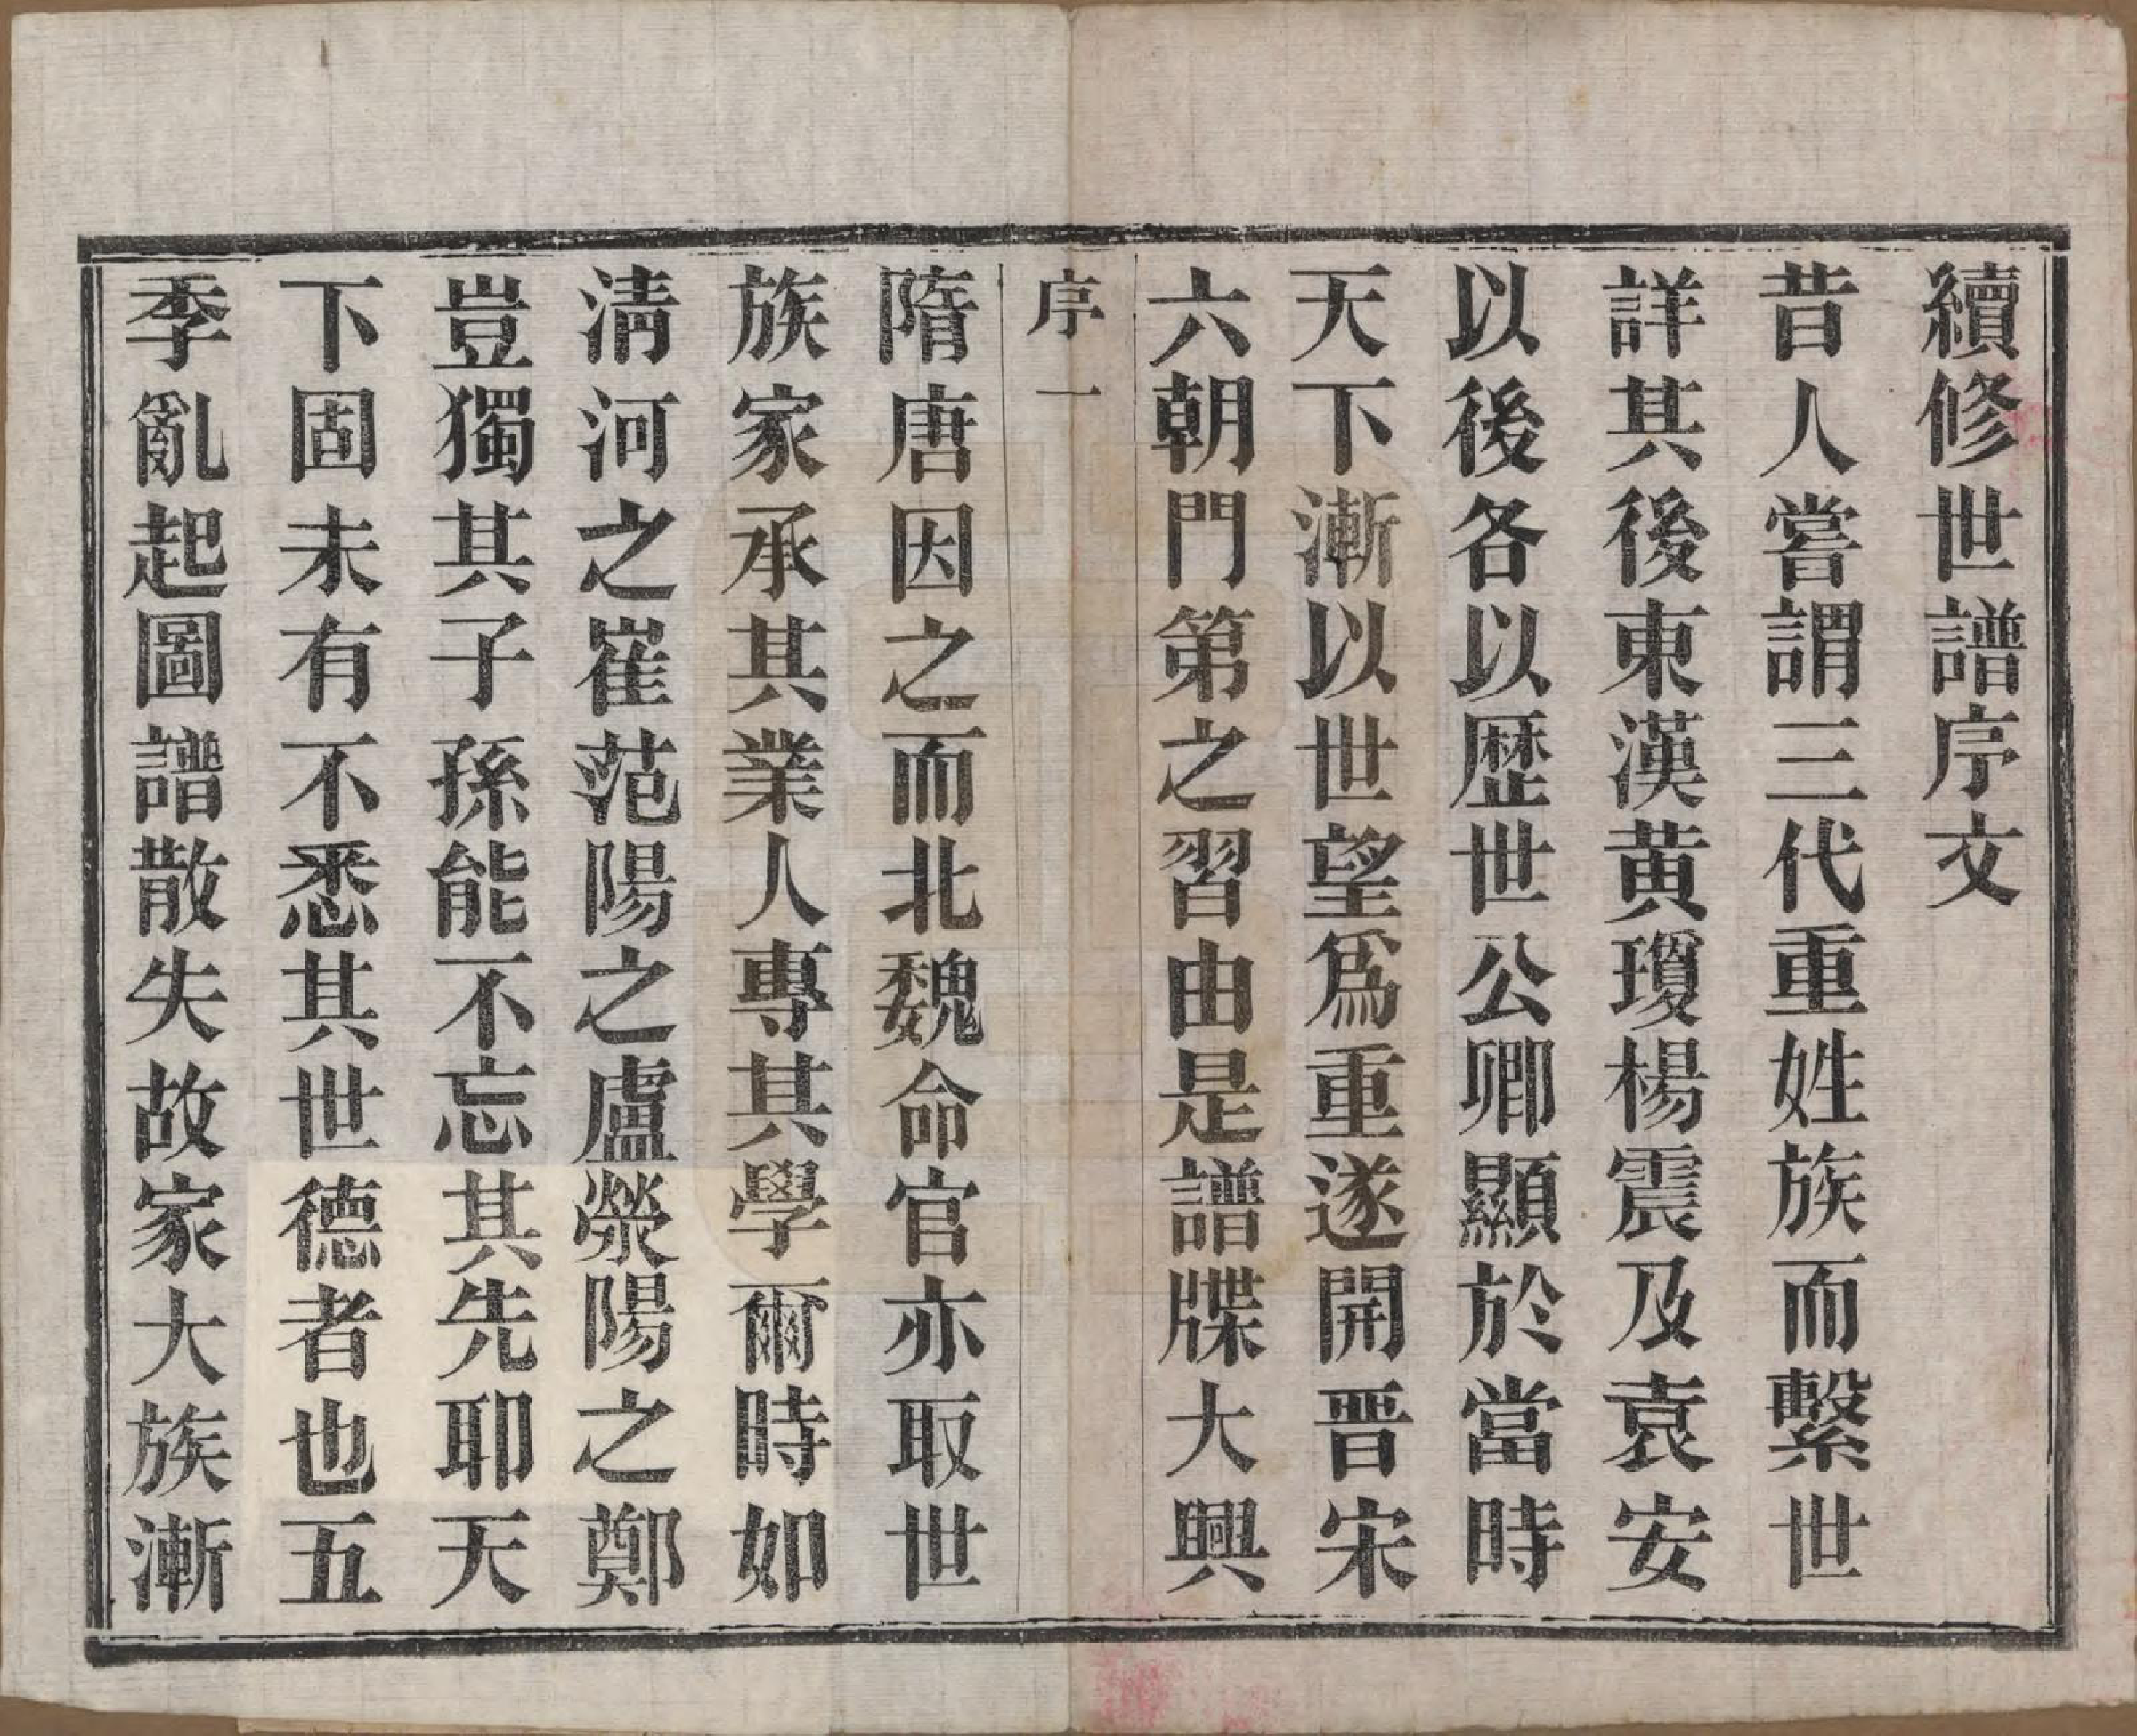 續修世譜序文
昔人嘗謂三代重姓族而繫世
詳其後東漢黄瓊楊震及袁安
以後各以歴世公卿顯於當時
天下漸以世望爲重遂開晋宋
六朝門第之習由是譜牒大興
序一
隋唐因之而北魏命官亦取世
族家承其業人專其學爾時如
淸河之崔范陽之盧滎陽之鄭
豈獨其子孫能不忘其先耶天
下固未有不悉其世德者也五
季亂起圖譜散失故家大族漸